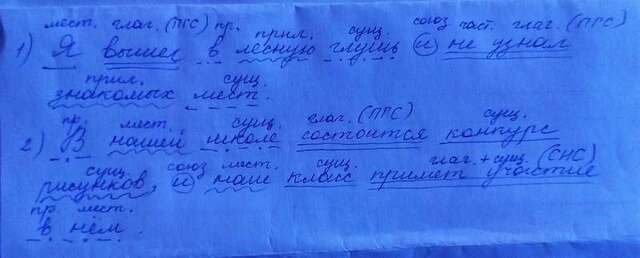 мест. глаг. (ПГС) пр. прил. сущ. союз част. глаг. (ПГС)
1) Я вышел в лесную глушь и не узнал
прил. сущ.
знакомых мест.
пр. мест. сущ. глаг. (ПГС) сущ.
2) В нашей школе состоится конкурс
сущ. союз мест. сущ. глаг. + сущ. (СИС)
рисунков, и наш класс примет участие
пр. мест.
в нём.